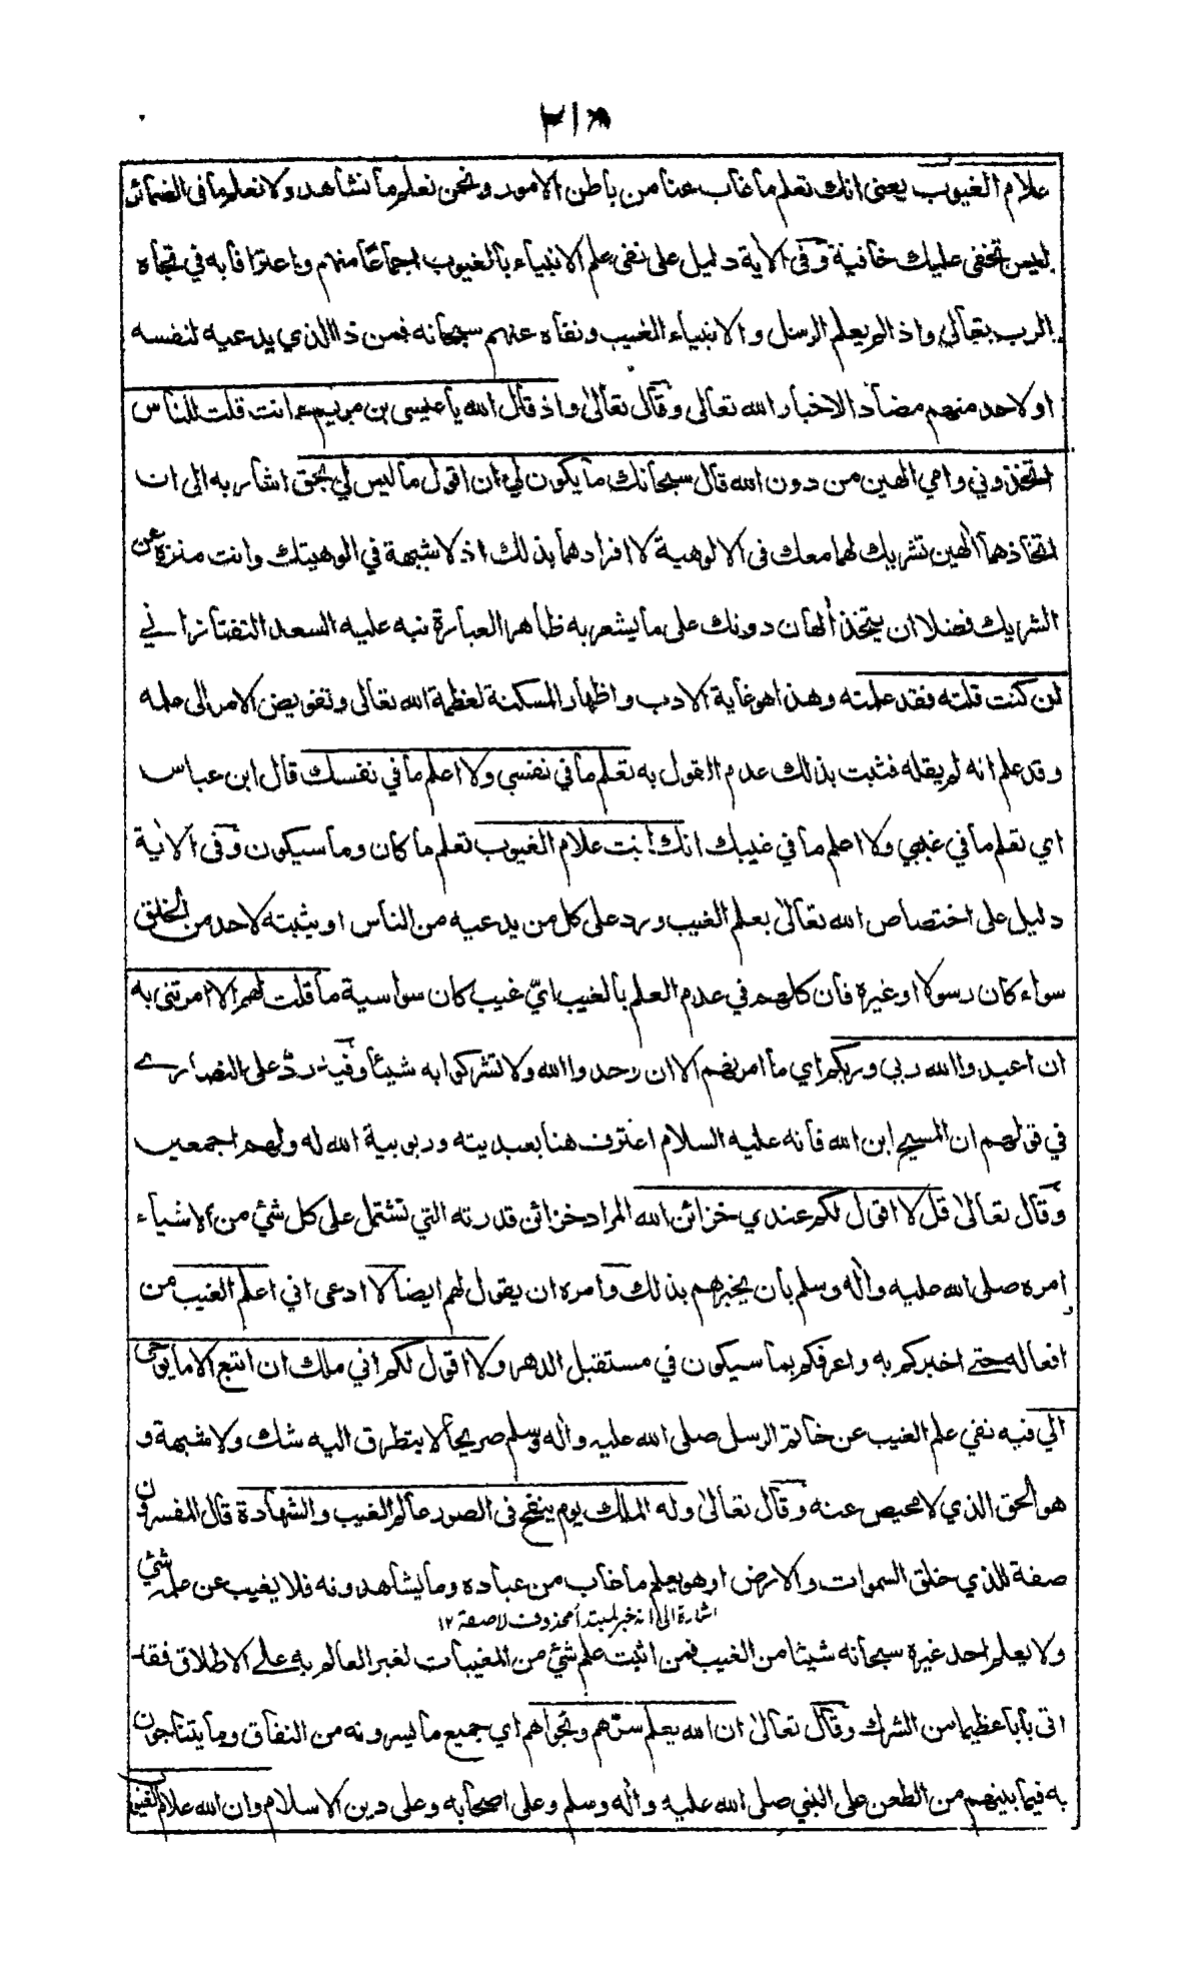 ٢١٨
علام الغيوب يعنى انك تعلم ما غاب عنا من باطن الامور ونحن نعلم ما نشاهد ولا نعلم ما فى الضمائر
ليس تخفى عليك خافية وفى الآية دليل على نفى علم الانبياء بالغيوب اجماعًا منهم واعترافا به في تجاه
الرب تعالى واذ الم يعلم الرسل والانبياء الغيب ونفاه عنهم سبحانه فمن ذا الذي يدعيه لنفسه
او لاحد منهم مضادًا لاخبار الله تعالى وقال تعالىٰ واذ قال الله يا عيسى بن مريم ءانت قلت للناس
اتخذوني وامي الهين من دون الله قال سبحانك ما يكون لي ان اقول ما ليس لي بحق اشار به الى ان
اتخاذهما الٰهين تشريك لهما معك فى الالوهية لا افرادهما بذلك اذ لا شبهة في الوهيتك وانت منزه عن
الشريك فضلا ان يتخذ الهان دونك على ما يشعر به ظاهر العبارة نبه عليه السعد التفتازانے
ان كنت قلته فقد علمته وهذا هو غاية الادب واظهار المسكنة لعظمة الله تعالى وتفويض الامر الى علمه
وقد علم انه لم يقله فثبت بذلك عدم القول به تعلم ما في نفسي ولا اعلم ما في نفسك قال ابن عباس
اي تعلم ما في غيبي ولا اعلم ما في غيبك انك انت علام الغيوب تعلم ما كان وما سيكون وفى الآية
دليل على اختصاص الله تعالىٰ بعلم الغيب ورد على كل من يدعيه من الناس او يثبته لاحد من الخلق
سواء كان رسولا او غيره فان كلهم في عدم العلم بالغيب ايّ غيب كان سواسية ما قلت لهم الا ما امرتنى به
ان اعبدوا الله ربي وربكم اي ما امرتهم الا ان وحدوا الله ولا تشركوا به شيئا وفيه ردٌّ على النصارے
في قولهم ان المسيح ابن الله فانه عليه السلام اعترف هنا بعبديته وربوبية الله له ولهم اجمعين
وقال تعالىٰ قل لا اقول لكم عندي خزائن الله المراد خزائن قدرته التي تشتمل على كل شئ من الاشياء
امره صلى الله عليه واٰله وسلم بان يخبرهم بذلك وامره ان يقول لهم ايضا لا ادعى اني اعلم الغيب من
افعاله حتے اخبركم به واعرفكم بما سيكون في مستقبل الدهر ولا اقول لكم اني ملك ان اتبع الا ما يوحى
الي فيه نفي علم الغيب عن خاتم الرسل صلى الله عليه واٰله وسلم صريحًا لا يتطرق اليه شك ولا شبهة و
هو الحق الذي لا محيص عنه وقال تعالىٰ وله الملك يوم ينفخ فى الصور عالم الغيب والشهادة قال المفسرون
صفة للذي خلق السموات والارض او هو يعلم ما غاب من عباده وما يشاهدونه فلا يغيب عن علمه شئ
اشارة الى انه خبر لمبتدأ محذوف لا صفة ١٢
ولا يعلم احد غيره سبحانه شيئا من الغيب فمن اثبت علم شئ من المغيبات لغير العالم به علے الاطلاق فقد
اتى بابا عظيما من الشرك وقال تعالىٰ ان الله يعلم سرّهم ونجواهم اي جميع ما يسرونه من النفاق وما يتناجون
به فيما بينهم من الطعن على النبي صلى الله عليه واٰله وسلم وعلى اصحابه وعلى دين الاسلام وان الله علام الغيوب